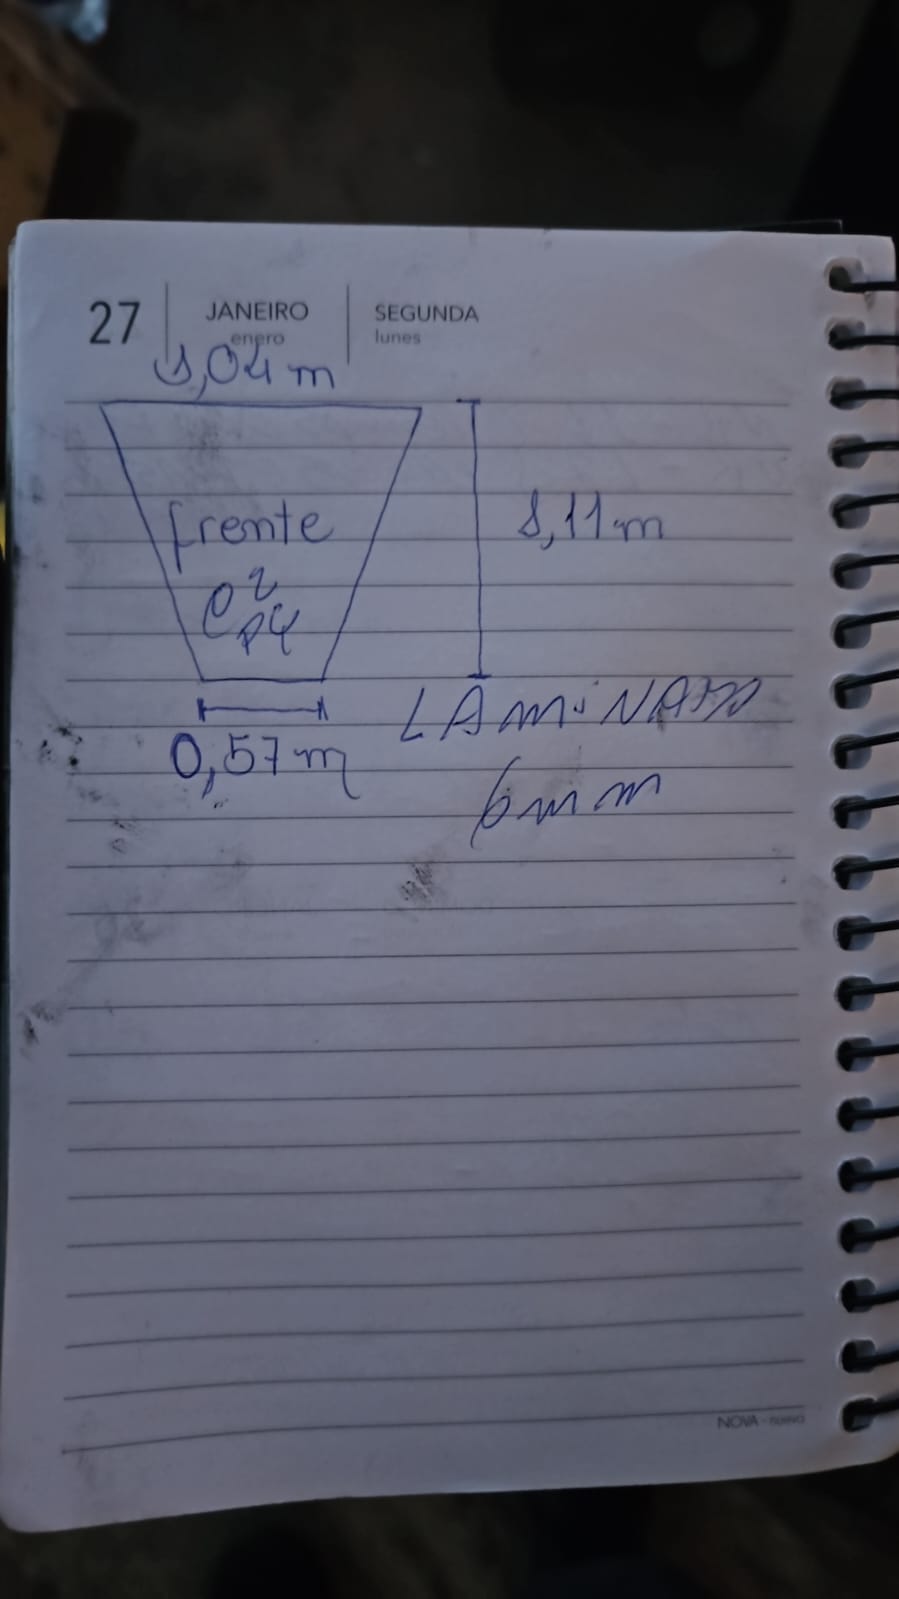 27 JANEIRO SEGUNDA
enero lunes
1,04 m
frente
1,11 m
0,57 m
LAMINADO
6mm
NOVA - nueva